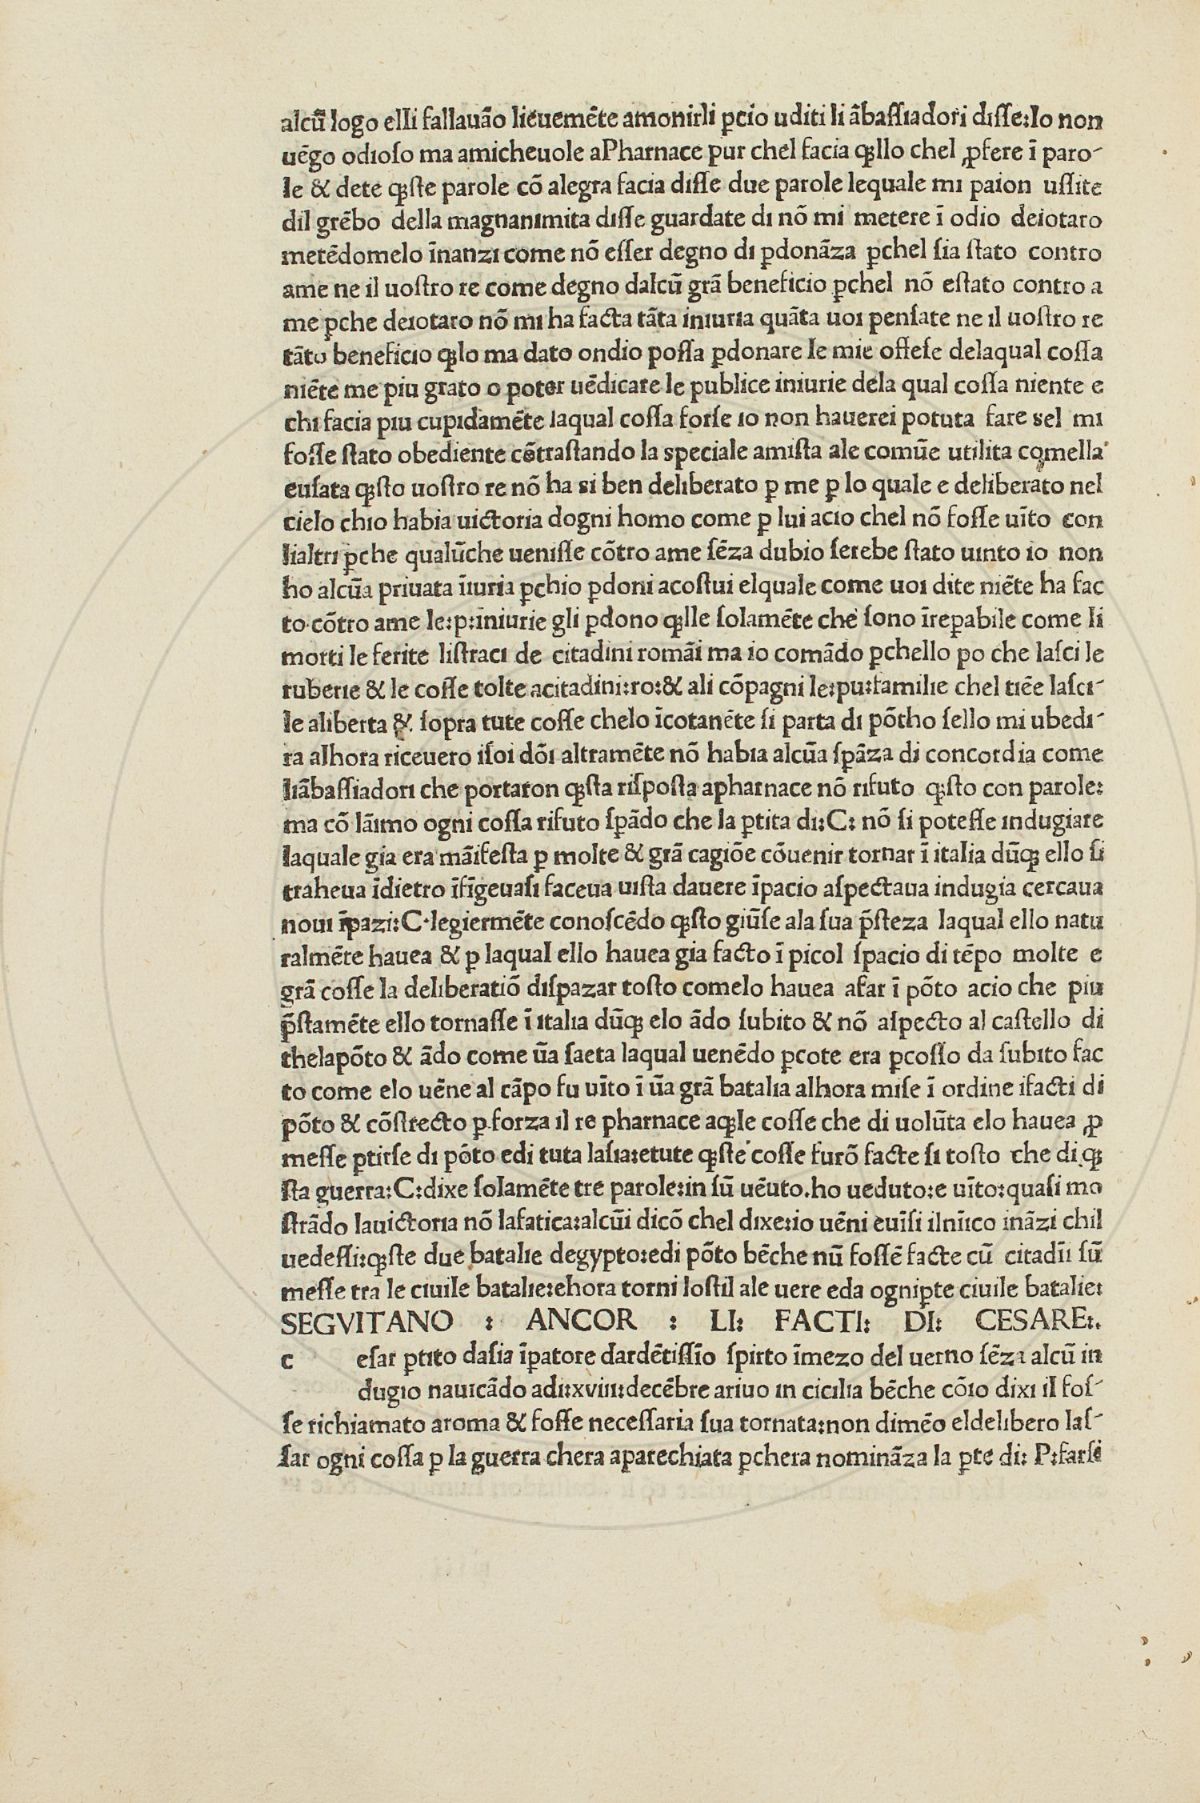 alcũ logo elli fallauão lieuemẽte amonirli ꝑcio uditi li ãbaſſiadori diſſe:Io non
uẽgo odioſo ma amicheuole aPharnace pur chel facia qͥllo chel ꝓfere ĩ paro-
le & dete qͥſte parole cõ alegra facia diſſe due parole lequale mi paion uſſite
dil grẽbo della magnanimita diſſe guardate di nõ mi metere ĩ odio deiotaro
metẽdomelo ĩnanzi come nõ eſſer degno di ꝑdonãza ꝑchel ſia ſtato contro
ame ne il uoſtro re come degno dalcũ grã beneficio ꝑchel nõ eſtato contro a
me ꝑche deiotaro nõ mi ha facta tãta iniuria quãta uoi penſate ne il uoſtro re
tãto beneficio qͥlo ma dato ondio poſſa ꝑdonare le mie offeſe delaqual coſſa
niẽte me piu grato o poter uẽdicare le publice iniurie dela qual coſſa niente e
chi facia piu cupidamẽte laqual coſſa forſe io non hauerei potuta fare ſel mi
foſſe ſtato obediente cõtraſtando la speciale amiſta ale comũe utilita comella
euſata qͥſto uoſtro re nõ ha si ben deliberato ꝑ me ꝑ lo quale e deliberato nel
cielo chio habia uictoria dogni homo come ꝑ lui acio chel nõ foſſe uĩto con
lialtri ꝑche qualũche ueniſſe cõtro ame ſẽza dubio ſerebe ſtato uinto io non
ho alcũa priuata ĩiuria ꝑchio ꝑdoni acoſtui elquale come uoi dite niẽte ha fac
to cõtro ame le:p:iniurie gli ꝑdono qͥlle ſolamẽte che ſono ĩreꝑabile come li
morti le ferite liſtraci de citadini romãi ma io comãdo ꝑchello po che laſci le
ruberie & le coſſe tolte acitadini:ro:& ali cõpagni le:pu:familie chel tiẽe laſci-
le aliberta & ſopra tute coſſe chelo ĩcotanẽte ſi parta di põtho ſello mi ubedi-
ra alhora riceuero iſoi dõi altramẽte nõ habia alcũa ſꝑãza di concordia come
liãbaſſiadori che portaron qͥſta riſpoſta apharnace nõ rifuto qͥſto con parole:
ma cõ lãimo ogni coſſa rifuto ſꝑãdo che la ꝑtita di:C: nõ ſi poteſſe indugiare
laquale gia era mãifeſta ꝑ molte & grã cagiõe cõuenir tornar ĩ italia dũqͥ ello ſi
traheua ĩdietro ĩfĩgeuaſi faceua uiſta dauere ĩpacio aſpectaua indugia cercaua
noui ĩpazi:C·legiermẽte conoſcẽdo qͥſto giũſe ala ſua p̃ſteza laqual ello natu
ralmẽte hauea & ꝑ laqual ello hauea gia facto ĩ picol ſpacio di tẽpo molte e
grã coſſe la deliberatiõ diſpazar toſto comelo hauea afar ĩ põto acio che piu
p̃ſtamẽte ello tornaſſe ĩ italia dũqͥ elo ãdo ſubito & nõ aſpecto al caſtello di
thelapõto & ãdo come ũa ſaeta laqual uenẽdo ꝑcote era ꝑcoſſo da ſubito fac
to come elo uẽne al cãpo fu uĩto ĩ ũa grã batalia alhora miſe ĩ ordine ifacti di
põto & cõſtrecto ꝑ forza il re pharnace aqͥle coſſe che di uolũta elo hauea ꝓ
meſſe ꝑtirſe di põto edi tuta laſia:etute qͥſte coſſe furõ facte ſi toſto che di qͥ
ſta guerra:C:dixe ſolamẽte tre parole:in ſũ uẽuto.ho ueduto:e uĩto:quaſi mo
ſtrãdo lauictoria nõ lafatica:alcũi dicõ chel dixe:io uẽni euĩſi ilnĩico inãzi chil
uedeſſi:qͥſte due batalie degypto:edi põto bẽche nũ foſſẽ facte cũ citadĩi ſũ
meſſe tra le ciuile batalie:ehora torni loſtil ale uere eda ogniꝑte ciuile batalie:
SEGVITANO : ANCOR : LI: FACTI: DI: CESARE:.
c eſar ꝑtito daſia ĩꝑatore dardẽtiſſĩo ſpirto ĩmezo del uerno ſẽza alcũ in
dugio nauicãdo adi:xviii:decẽbre ariuo in cicilia bẽche cõio dixi il foſ-
ſe richiamato aroma & foſſe neceſſaria ſua tornata:non dimẽo eldelibero laſ-
ſar ogni coſſa ꝑ la guerra chera aparechiata ꝑchera nominãza la ꝑte di: P:farſi